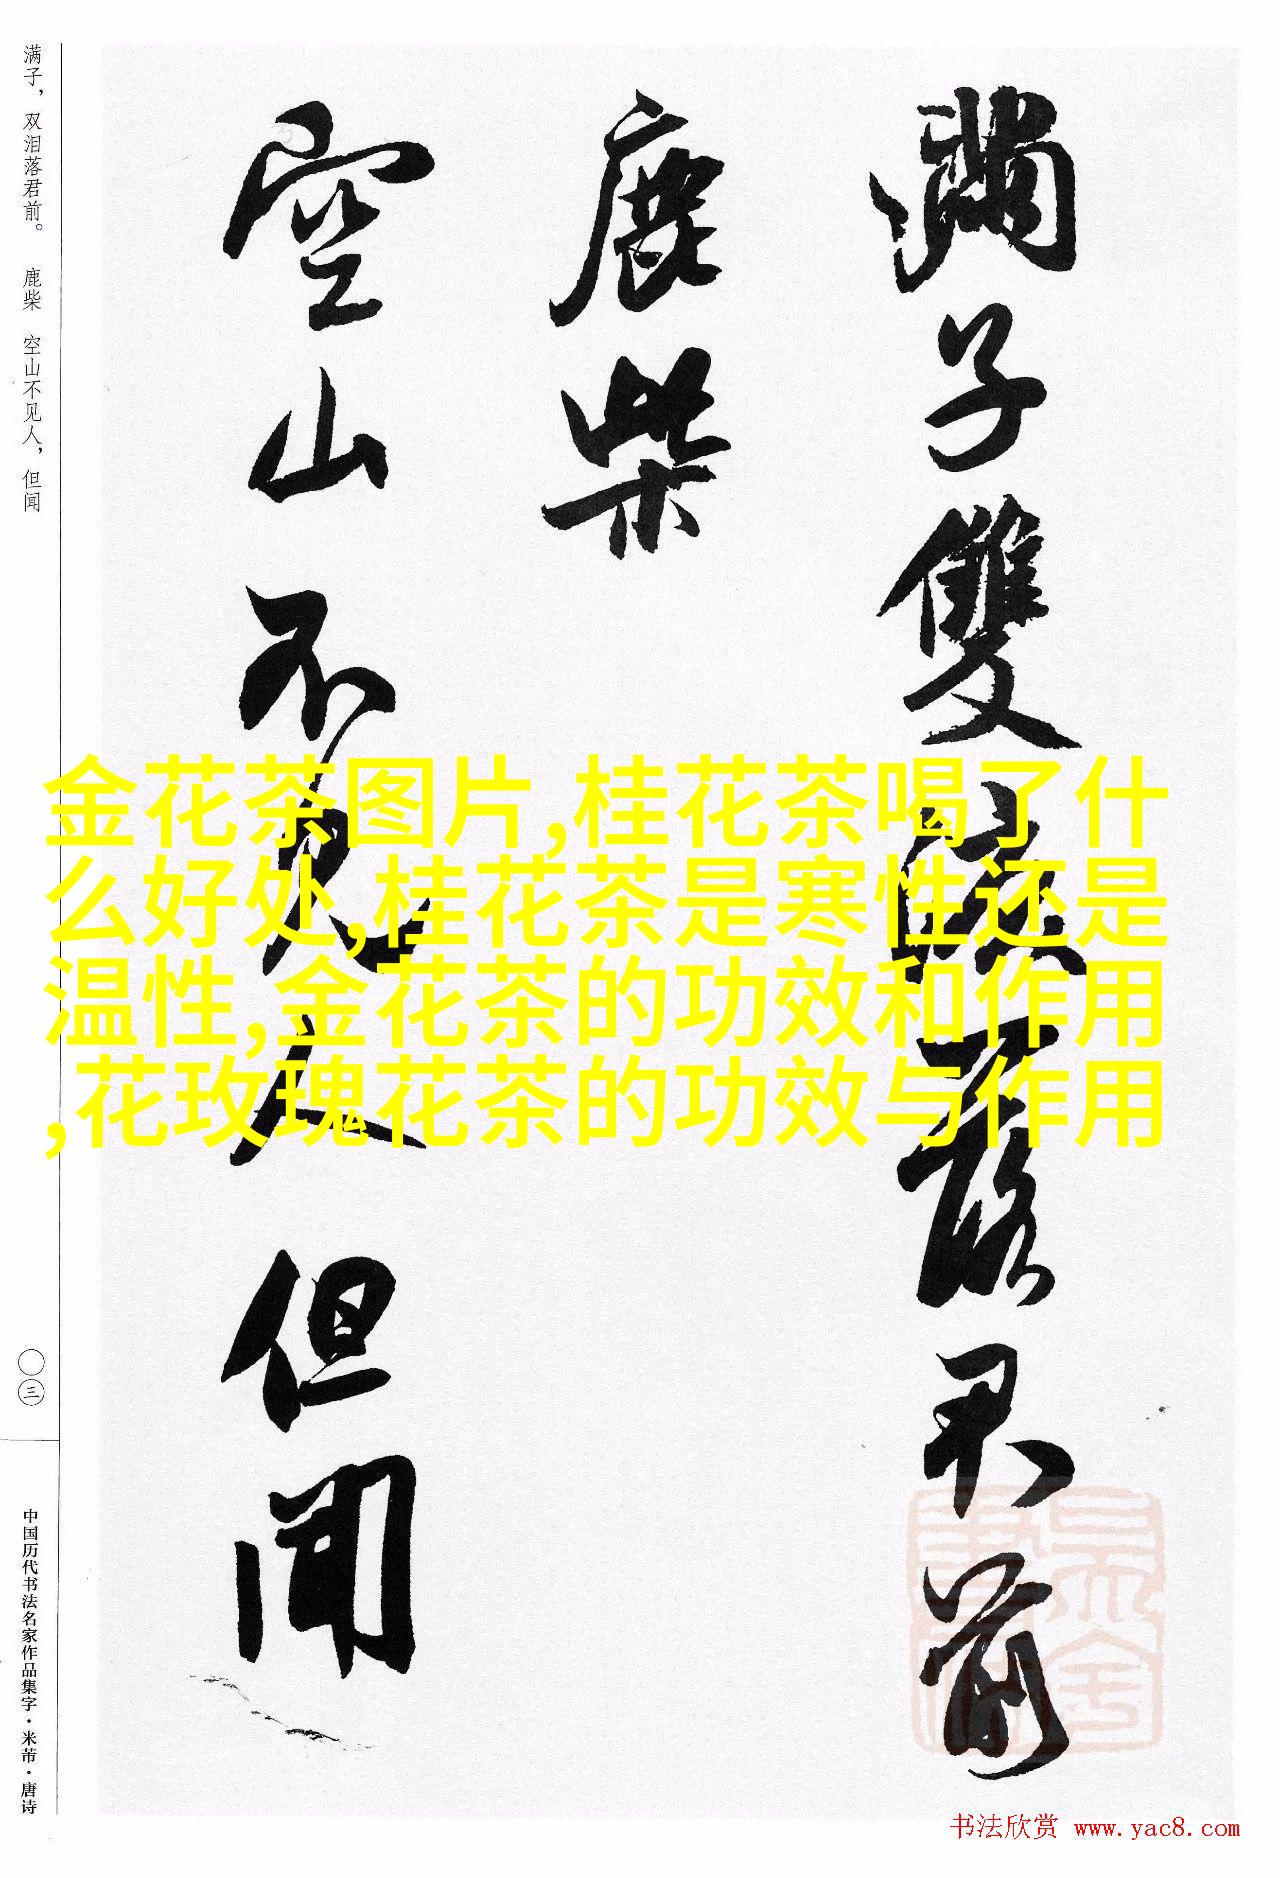 滿子雙淚落君前
鹿柴
空山不見人但聞
金花茶图片,桂花茶喝了什
么好处,桂花茶是寒性还是
温性,金花茶的功效和作用
,花玫瑰花茶的功效与作用
满子，双泪落君前。 鹿柴 空山不见人，但闻
〇三
中国历代书法名家作品集字·米芾·唐诗
书法欣赏 www.yac8.com